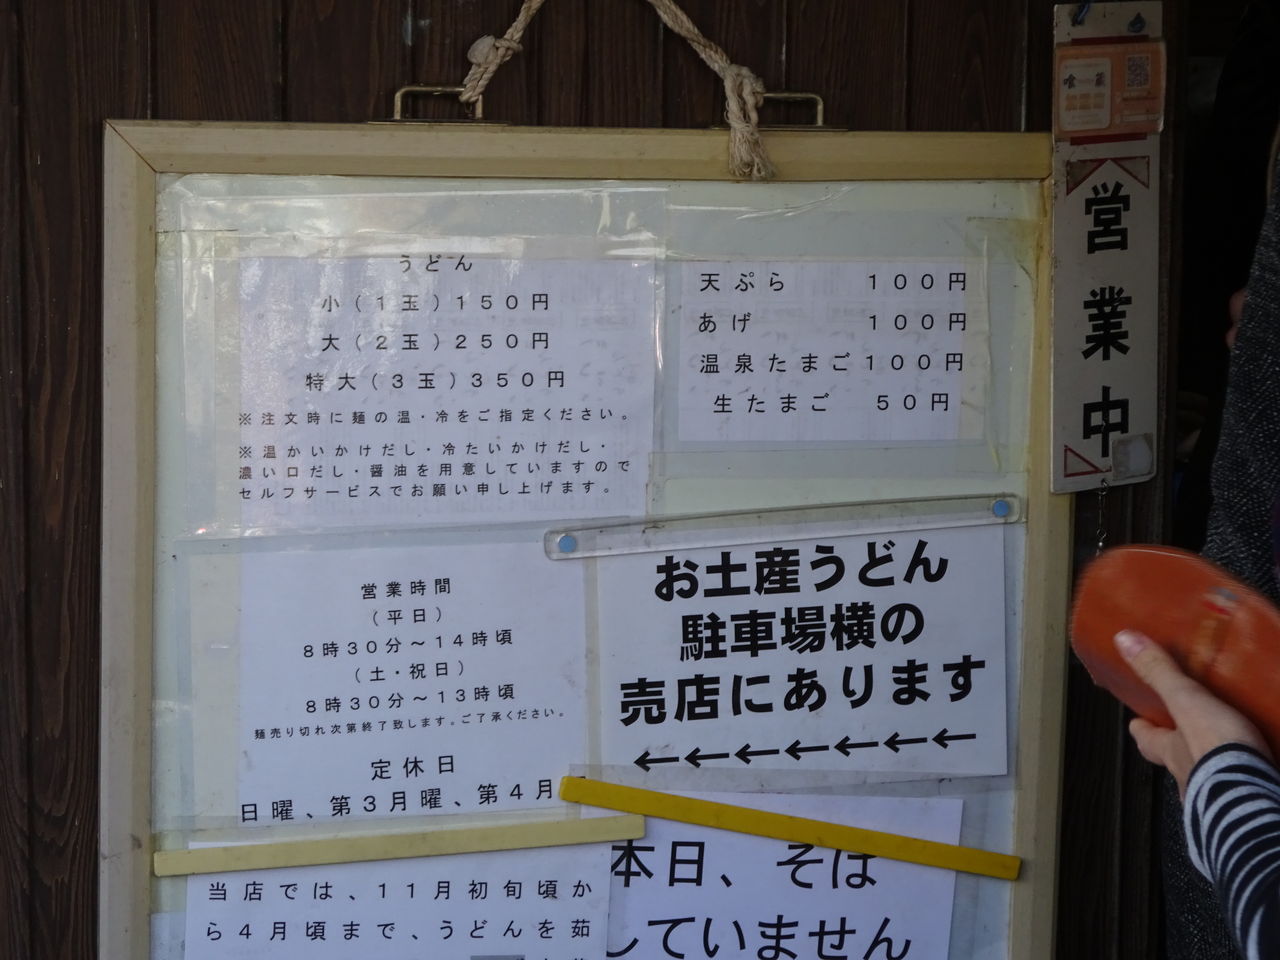 うどん
小(1玉)150円
大(2玉)250円
特大(3玉)350円
※注文時に麺の温・冷をご指定ください。
※温かいかけだし・冷たいかけだし・
濃い口だし・醤油を用意していますので
セルフサービスでお願い申し上げます。
天ぷら 100円
あげ 100円
温泉たまご100円
生たまご 50円
営業中
営業時間
(平日)
8時30分~14時頃
(土・祝日)
8時30分~13時頃
麺売り切れ次第終了致します。ご了承ください。
定休日
日曜、第3月曜、第4月
お土産うどん
駐車場横の
売店にあります
←←←←←←←
当店では、11月初旬頃か
ら4月頃まで、うどんを茹
本日、そば
していません